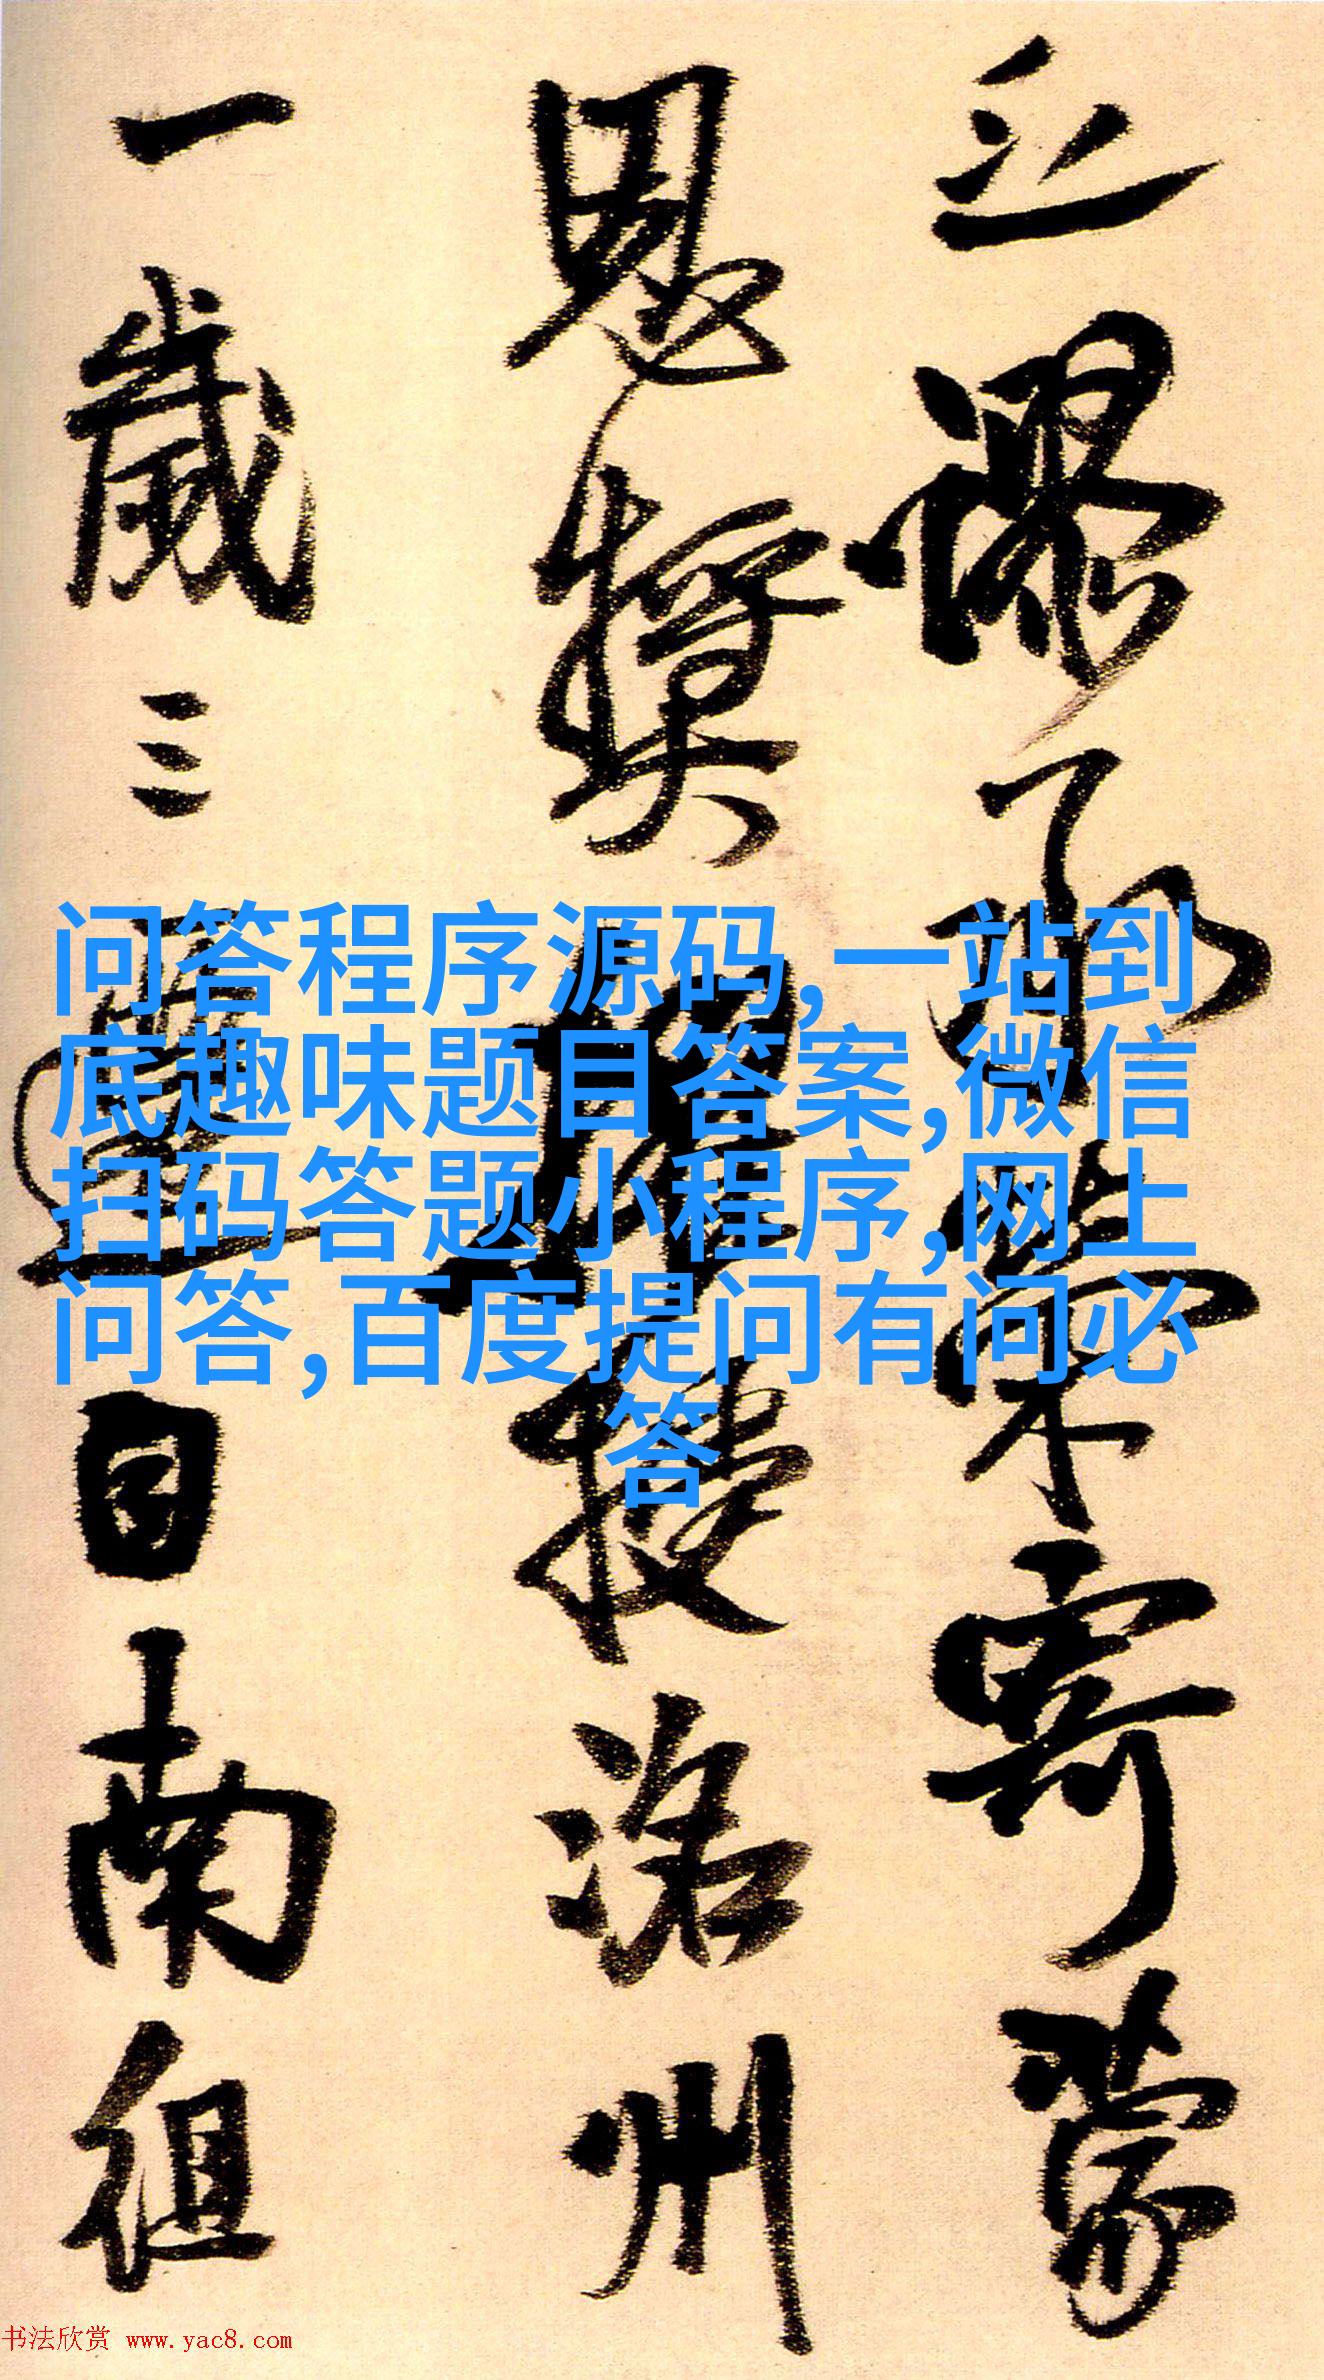 之谬承荣寄蒙
恩奖擢授洺州
一歲三遷自南徂
问答程序源码,一站到
底趣味题目答案,微信
扫码答题小程序,网上
问答,百度提问有问必
答
书法欣赏 www.yac8.com